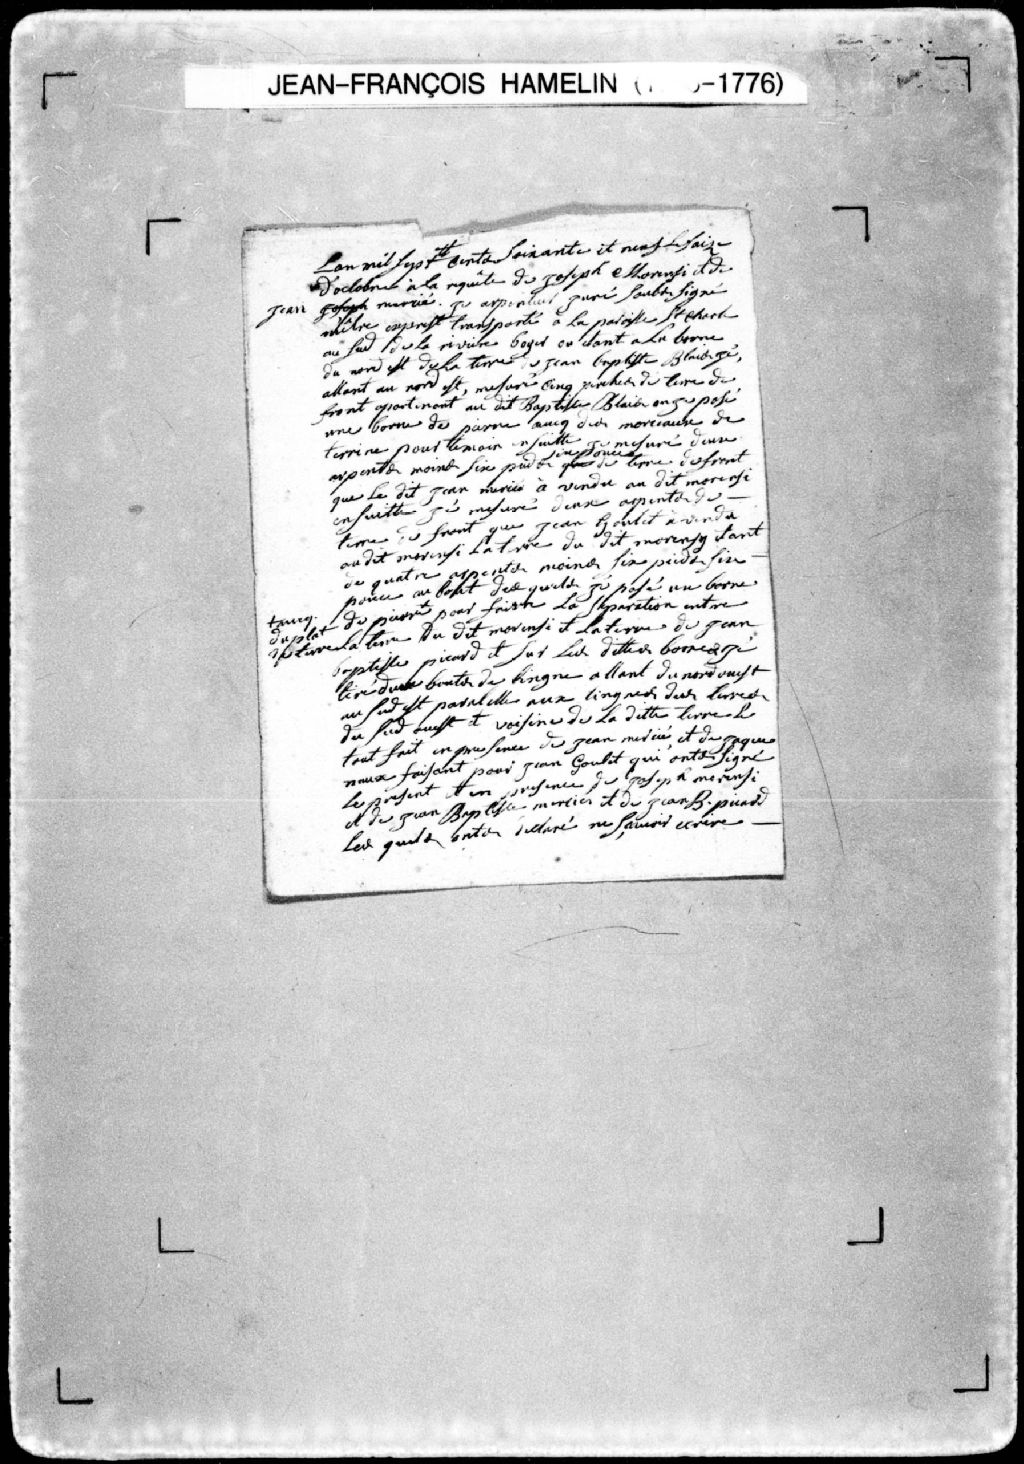 JEAN-FRANÇOIS HAMELIN ( -1776)
Lan mil sept cents soixante et neuf le saize
D'octobre à la requête de joseph Morensi et de
jean joseph mercié. je arpenteur juré soubs signé
mêtre exprest transporté à la paroisse St Charle
au sud de la rivière boyer ou etant a la borne
du nord est de la terre de jean baptiste Blais jé,
allant au nord est, mesuré cinq perches de terre de
front apartenant au dit Baptiste Blais ou jé posé
une borne de pierre aucq des morceaux de
terrine pour temoin ensuitte jé mesuré deux
six pouces
arpents moins six pieds de terre de front
que le dit jean mercié à vendu au dit morensi
ensuitte jé mesuré deux arpents de —
terre de front que jean Goulet à vendu
audit morensi la terre du dit morensy etant
de quatre arpents moins six pieds six —
pouce au bout des quels jé posé un borne
de pierre pour faire la separation entre
taucq.
du plat
de terre
la terre du dit morensi et la terre de jean
baptiste picard et sur les dittes bornes jé
tiré deux bouts de lingne allant du nord ouest
au sud est paralelle aux lingnes des terres
du sud ouest et voisine de la ditte terre le
tout fait en presence de jean mercié et de jaque
naux faisant pour jean Goulet qui onts signé
le present et en presence de joseph morensi
et de jean Baptiste mercier et de jean B. picard
les quels onts declaré ne sçavoir ecrire —